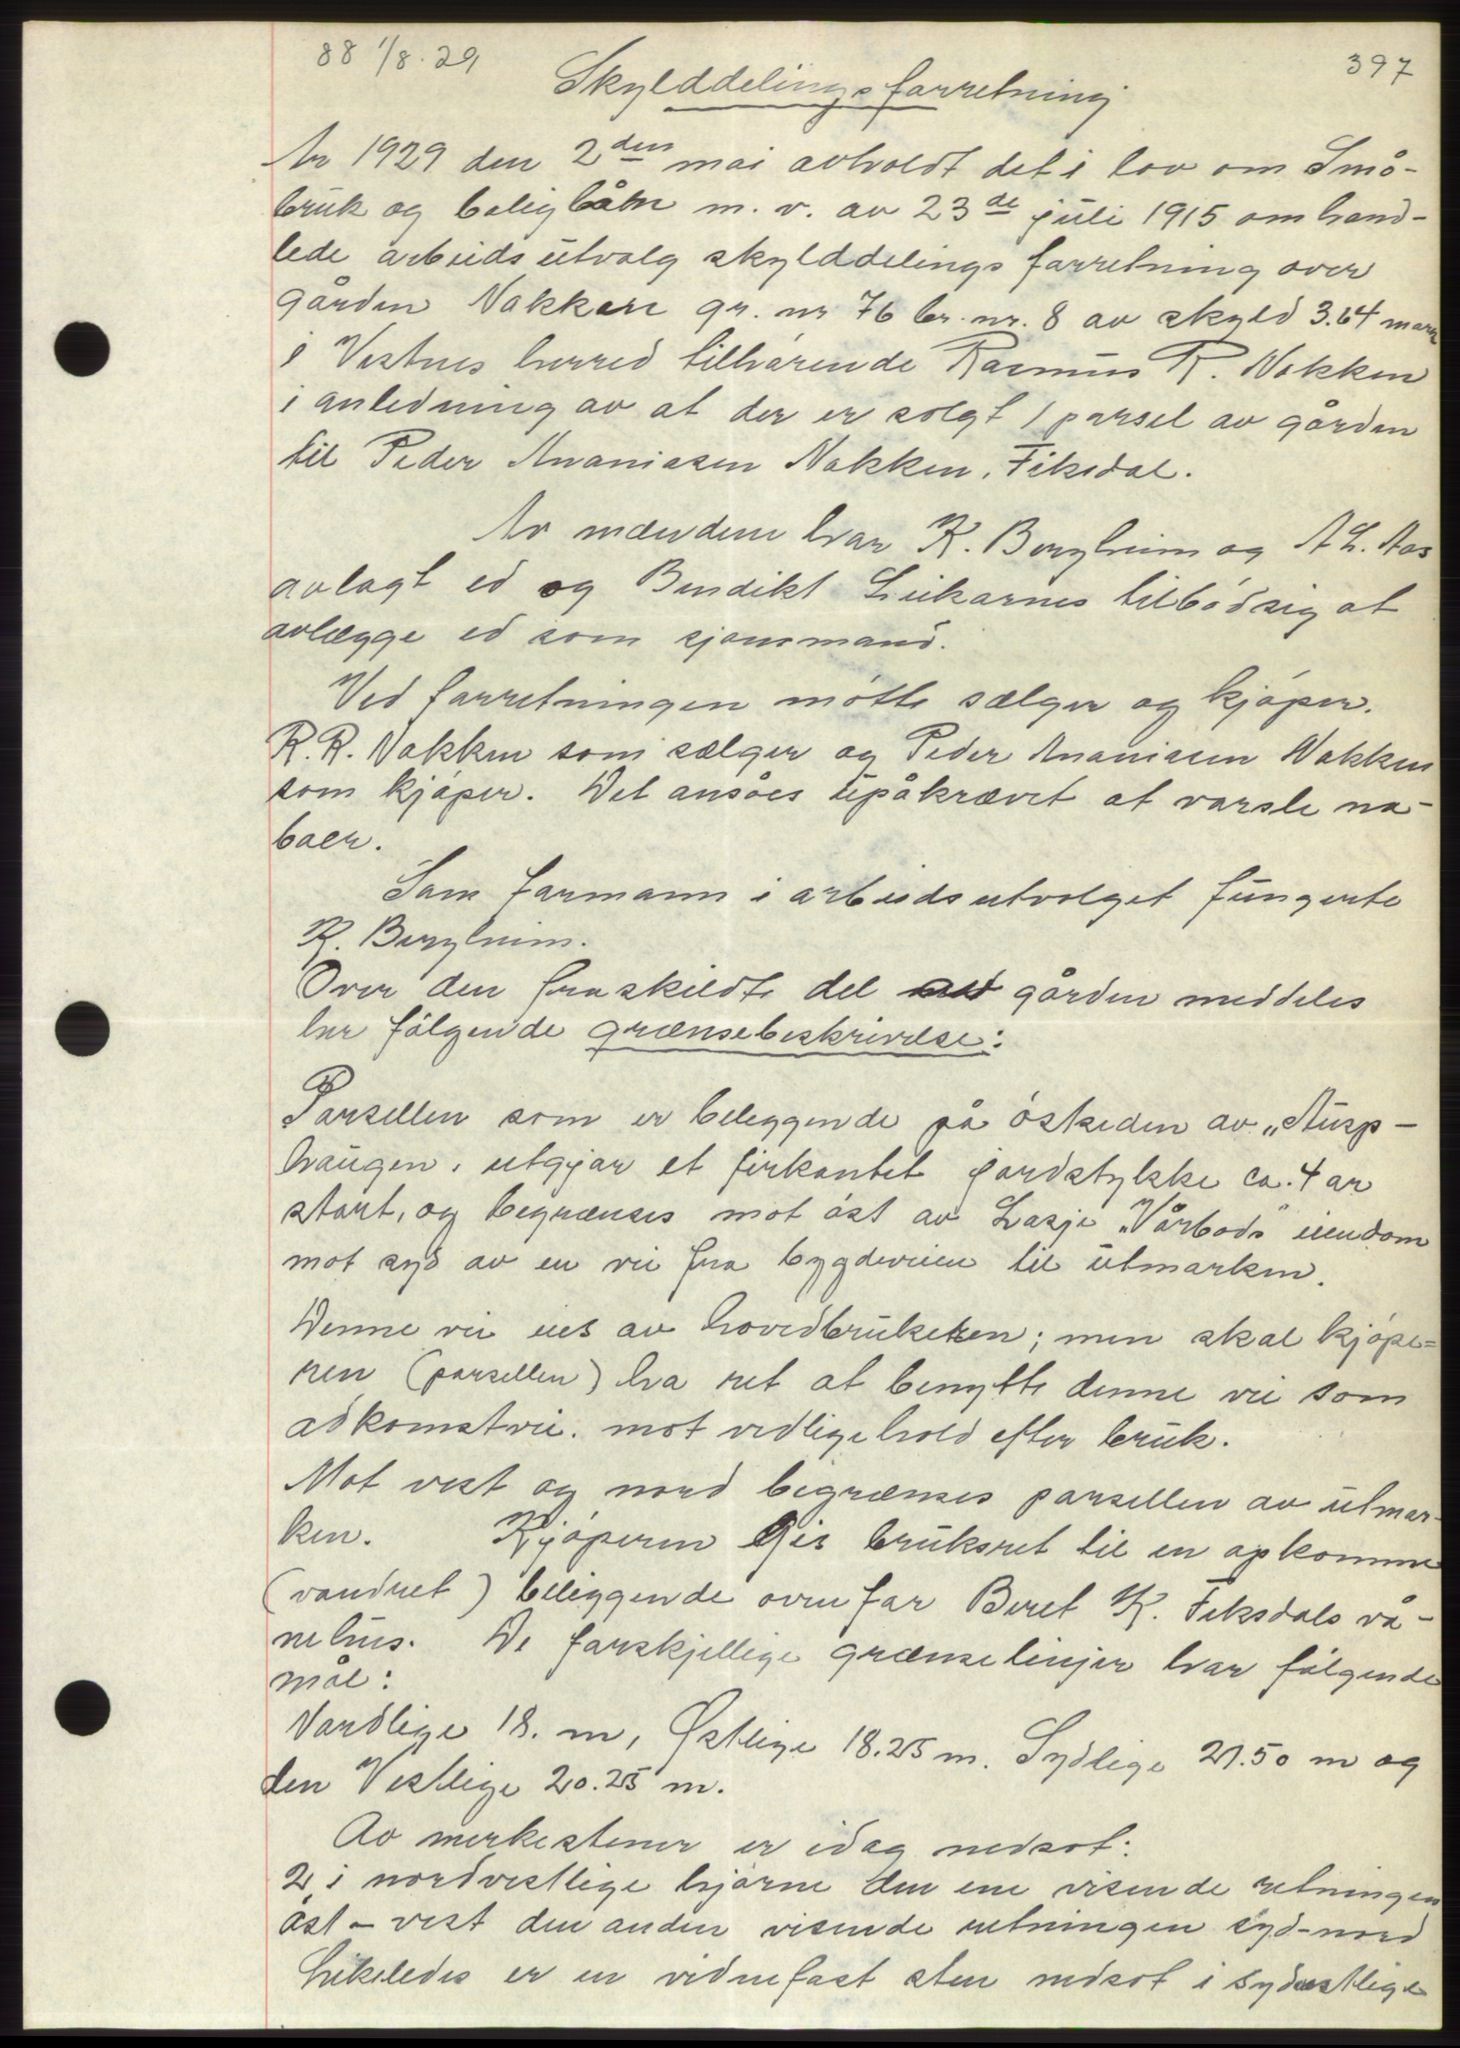 88 1/8.29
397
Skylddelingsforretning
År 1929 den 2den mai avholdt det i lov om Små-
bruk og boliglån m. v. av 23de juli 1915 omhand-
lede arbeidsutvalg skylddelingsforretning over
gården Nakken gr. nr 76 br. nr. 8 av skyld 3.64 mark
i Vestnes herred tilhørende Rasmus R. Nakken
i anledning av at der er solgt 1 parsel av gården
til Peder Ananiasen Nakken, Fiksdal.
Av mændene har K. Bergheim og A L. Aas
avlagt ed og Bendikt Leikarnes tilbød sig at
avlægge ed som sjønsmand.
Ved forretningen møtte sælger og kjøper.
R. R. Nakken som sælger og Peder Ananiasen Nakken
som kjøper. Det ansåes upåkrævet at varsle na-
boer.
Som formann i arbeidsutvalget fungerte
K. Bergheim.
Over den fraskildte del av gården meddeles
her følgende grænsebeskrivelse:
Parsellen som er beleggende på østsiden av „Ausp-
haugen, utgjør et firkantet jordstykke ca. 4 ar
stort, og begrænses mot øst av Lasje „Vårbods" eiendom
mot syd av en vei fra bygdeveien til utmarken.
Denne vei eies av hovedbruketen; men skal kjøpe=
ren (parsellen) ha ret at benytte denne vei som
adkomstvei. mot vedligehold efter bruk.
Mot vest og nord begrænses parsellen av utmar-
ken. Kjøperen gis bruksret til en opkomme
(vandret) beliggende ovenfor Beret K. Fiksdals vå-
nehus. De forskjellige grænselinjer har følgende
mål:
Nordlige 18. m, Østlige 18.25 m. Sydlige 21.50 m og
den Vestlige 20.25 m.
Av merkestener er idag nedsat:
2 i nordvestlige hjørne den ene visende retningen
øst-vest den anden visende retningen syd-nord
Likeledes er en vidnefast sten nedsat i sydøstlige